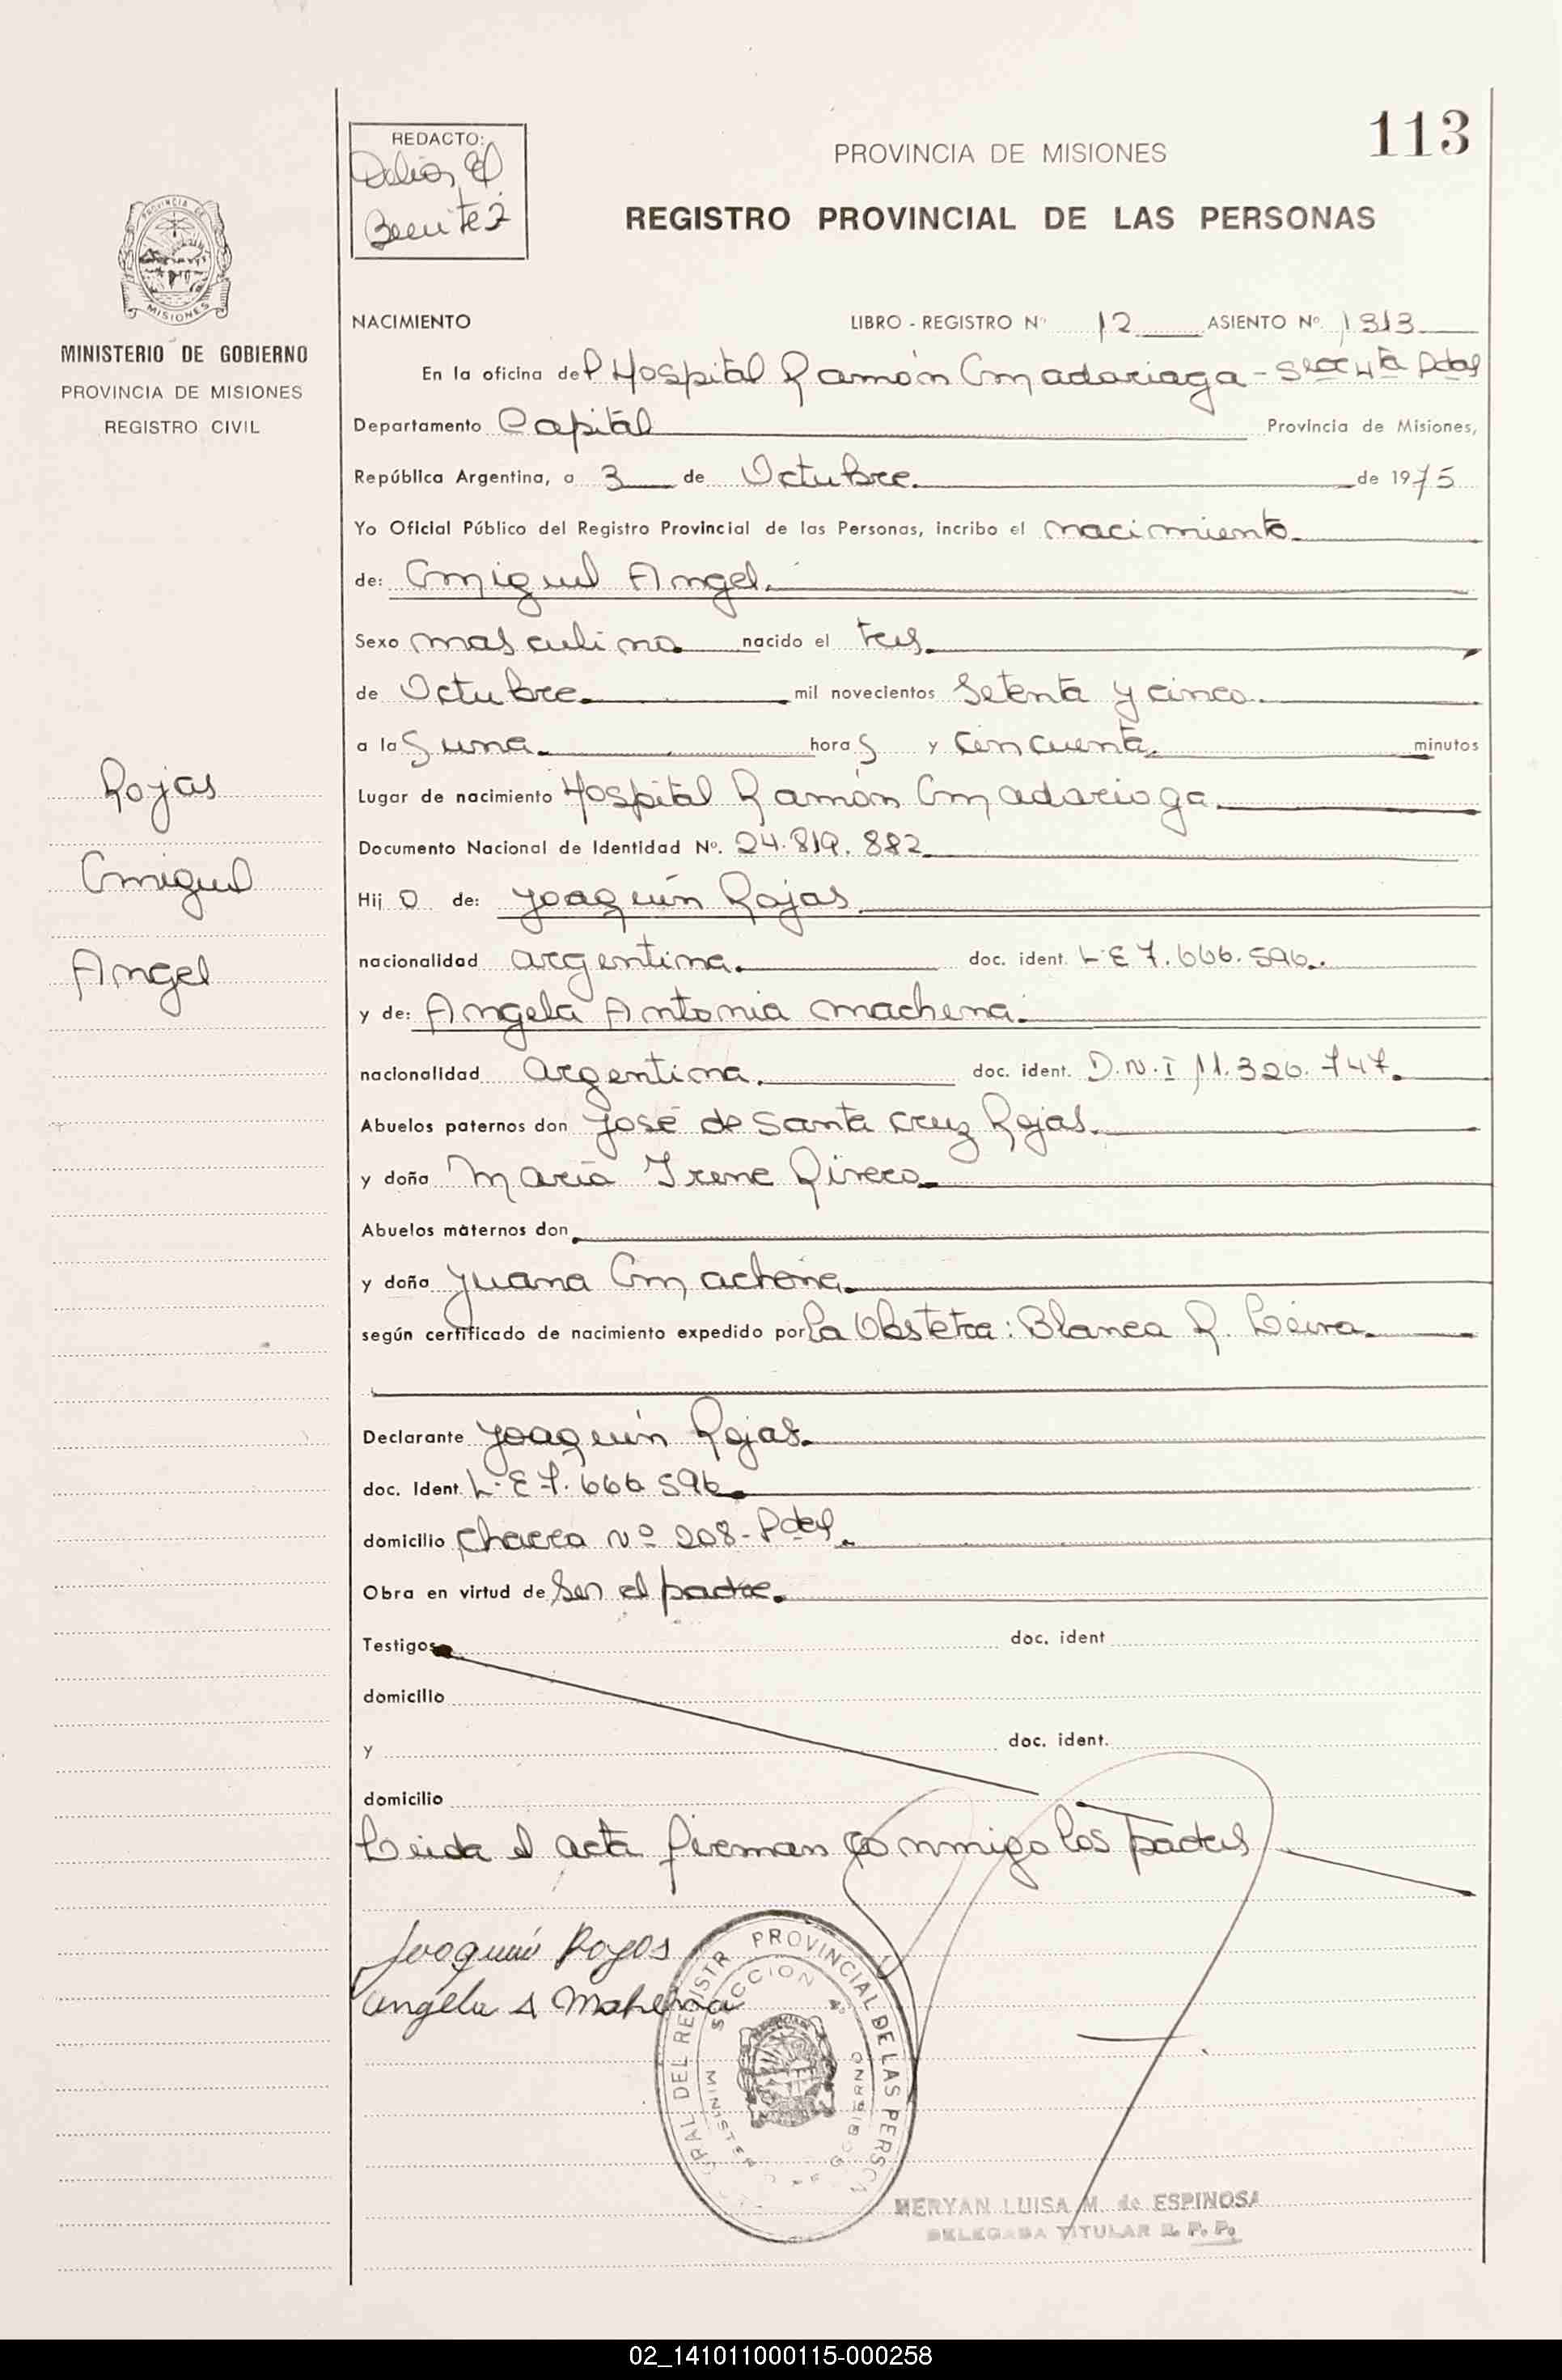 113
REDACTO:
Benitez
PROVINCIA DE MISIONES
REGISTRO PROVINCIAL DE LAS PERSONAS
PROVINCIA DE
MISIONES
MINISTERIO DE GOBIERNO
PROVINCIA DE MISIONES
REGISTRO CIVIL
NACIMIENTO LIBRO - REGISTRO Nº 12 ASIENTO Nº 1313
En la oficina del Hospital Ramón Madariaga - Secc 4ta Pdas
Departamento Capital Provincia de Misiones,
República Argentina, a 3 de Octubre de 1975
Yo Oficial Público del Registro Provincial de las Personas, incribo el nacimiento
de: Miguel Angel.
Sexo masculino nacido el tres
de Octubre mil novecientos Setenta y cinco
a las una horas y cincuenta minutos
Lugar de nacimiento Hospital Ramón Madariaga
Documento Nacional de Identidad Nº. 24.819.882
Hijo de: Joaquín Rojas
nacionalidad argentina doc. ident. L E 7.666.596.
y de: Angela Antonia Machena
nacionalidad Argentina. doc. ident. D.N.I 11.326.747.
Abuelos paternos don José de Santa Cruz Rojas.
y doña María Irene Rivero
Abuelos maternos don
y doña Juana Machena
según certificado de nacimiento expedido por la Obstetra: Blanca R. Leiva
Declarante Joaquín Rojas.
doc. Ident. L.E 7.666 596
domicilio Chacra Nº 208 - Pdas.
Obra en virtud de Ser el padre.
Testigos doc. ident
domicilio
y doc. ident.
domicilio
Leida el acta firman conmigo los padres
Joaquin Rojas
Angela A Mahena
Rojas
Miguel
Angel
PROVINCIAL DE LAS PERSON
RAL DEL REGISTR
SECCION 4ª
MINISTER GOBIERNO
MERYAN LUISA M. de ESPINOSA
DELEGADA TITULAR R. P. P.
02_141011000115-000258